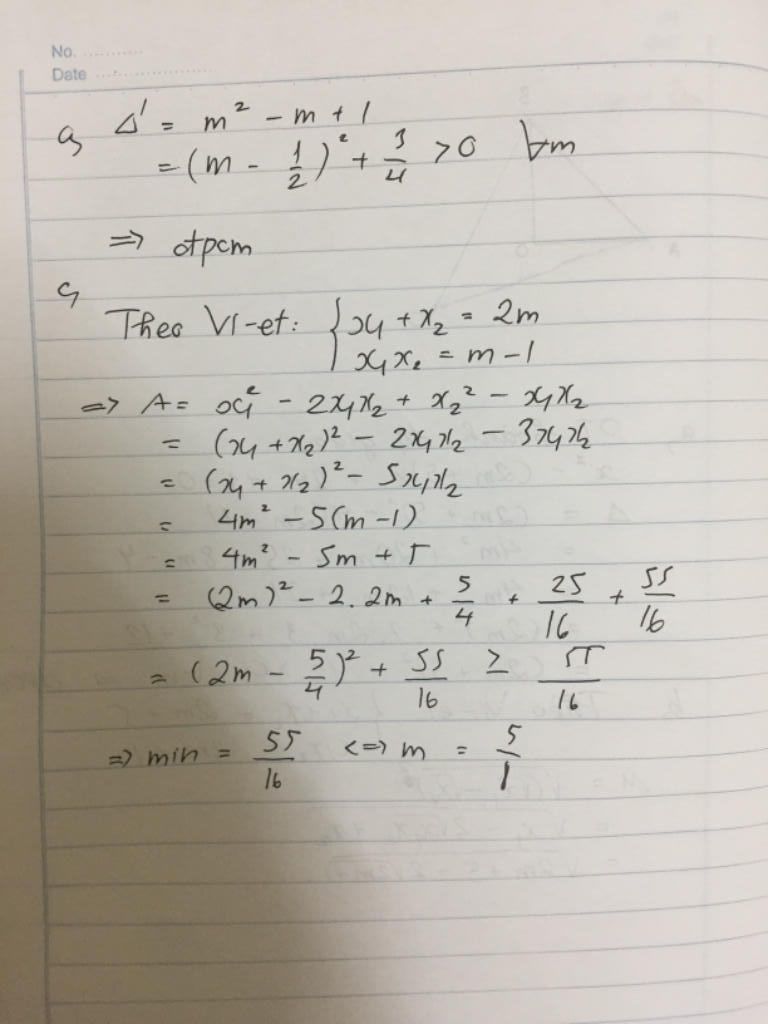 No. ............
Date ......................
a, Δ' = m² - m + 1
= (m - 1/2)² + 3/4 > 0 ∀m
=> đpcm
c,
Theo Vi-et: { x₁ + x₂ = 2m
x₁x₂ = m - 1
=> A = x₁² - 2x₁x₂ + x₂² - x₁x₂
= (x₁ + x₂)² - 2x₁x₂ - 3x₁x₂
= (x₁ + x₂)² - 5x₁x₂
= 4m² - 5(m - 1)
= 4m² - 5m + 5
= (2m)² - 2. 2m + 5/4 + 25/16 + 55/16
= (2m - 5/4)² + 55/16 ≥ 55/16
=> min = 55/16 <=> m = 5/1